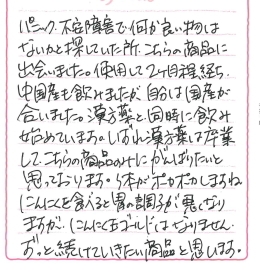 パニック、不安障害で何か良い物は
ないかと探していた所、こちらの商品に
出会いました。使用して2ヶ月程経ち、
中国産も飲みましたが自分は国産が
合いました。漢方薬と同時に飲み
始めています。いずれ漢方薬は卒業
して、こちらの商品のみにがんばりたいと
思っております。体がポカポカしますね
にんにくを食べると胃の調子が悪くなり
ますが、にんにく玉ゴールドはなりません。
ずっと続けていきたい商品と思います。